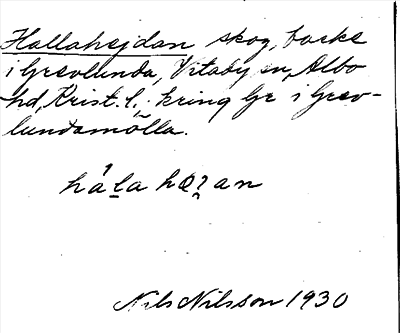 Hallahejdan skog, backe
i Grevlunda, Vitaby sn, Albo
hd, Krist. l., kring lgr i Grev-
lundamölla.
Nils Nilsson 1930